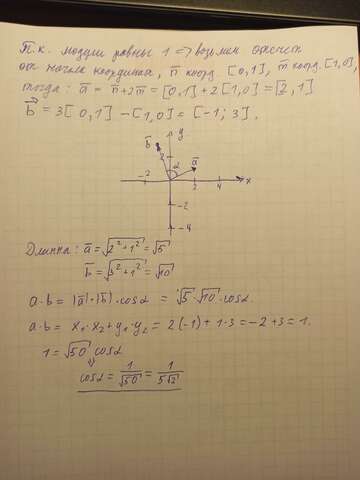 Т.к. модули равны 1 => возьмем отсчет
от начала координат, n̄ коорд. [0,1], m̄ коорд. [1,0],
тогда: a̅ = n̅ + 2m̅ = [0,1] + 2[1,0] = [2,1]
b⃗ = 3[0,1] - [1,0] = [-1; 3].
y
b̅
2
a̅
α
-2
2
4
x
-2
-4
Длинна: a̅ = √(2²+1²) = √5
b̅ = √(3²+1²) = √10
a·b = |a̅|·|b̅|·cosα = √5·√10·cosα.
a·b = x₁·x₂+y₁·y₂ = 2(-1)+1·3 = -2+3 = 1.
1 = √50 cosα
⇓
cosα = 1/√50 = 1/5√2